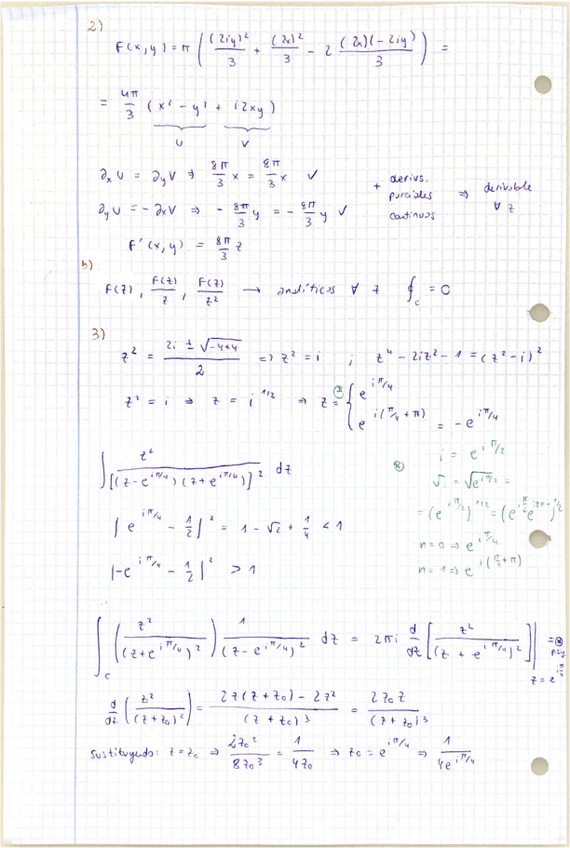 2)
F(x,y) = π ( (2iy)²/3 + (2x)²/3 - 2 (2x)(-2iy)/3 ) =
= 4π/3 ( x² - y² + i2xy )
U V
∂x U = ∂y V ⇒ 8π/3 x = 8π/3 x ✓
∂y U = - ∂x V ⇒ - 8π/3 y = - 8π/3 y ✓
+ derivs. parciales continuas ⇒ derivable ∀ z
F'(x,y) = 8π/3 z
b)
F(z), F(z)/z, F(z)/z² → analíticas ∀ z ∮c = 0
3)
z² = (2i ± √-4+4)/2 => z² = i ; z⁴ - 2iz² - 1 = (z² - i)²
z² = i ⇒ z = i^1/2 ⇒ z = { e^iπ/4
e^i(π/4 + π) = -e^iπ/4
⊛ i = e^iπ/2
√i = √e^iπ/2 =
= (e^iπ/2)^1/2 = (e^iπ/2 e^i2πn)^1/2
n = 0 ⇒ e^iπ/4
n = 1 ⇒ e^i(π/4 + π)
∫ z²/[(z - e^iπ/4)(z + e^iπ/4)]² dz
| e^iπ/4 - 1/2 |² = 1 - √2 + 1/4 < 1
|-e^iπ/4 - 1/2 |² > 1
∫c ( z²/(z + e^iπ/4)² ) 1/(z - e^iπ/4)² dz = 2πi d/dz [ z²/(z + e^iπ/4)² ] | =
z = e^iπ/4
d/dz ( z²/(z + z₀)² ) = (2z(z + z₀) - 2z²)/(z + z₀)³ = 2z₀z/(z + z₀)³
Sustituyendo: z = z₀ ⇒ 2z₀²/8z₀³ = 1/4z₀ ⇒ z₀ = e^iπ/4 ⇒ 1/4e^iπ/4